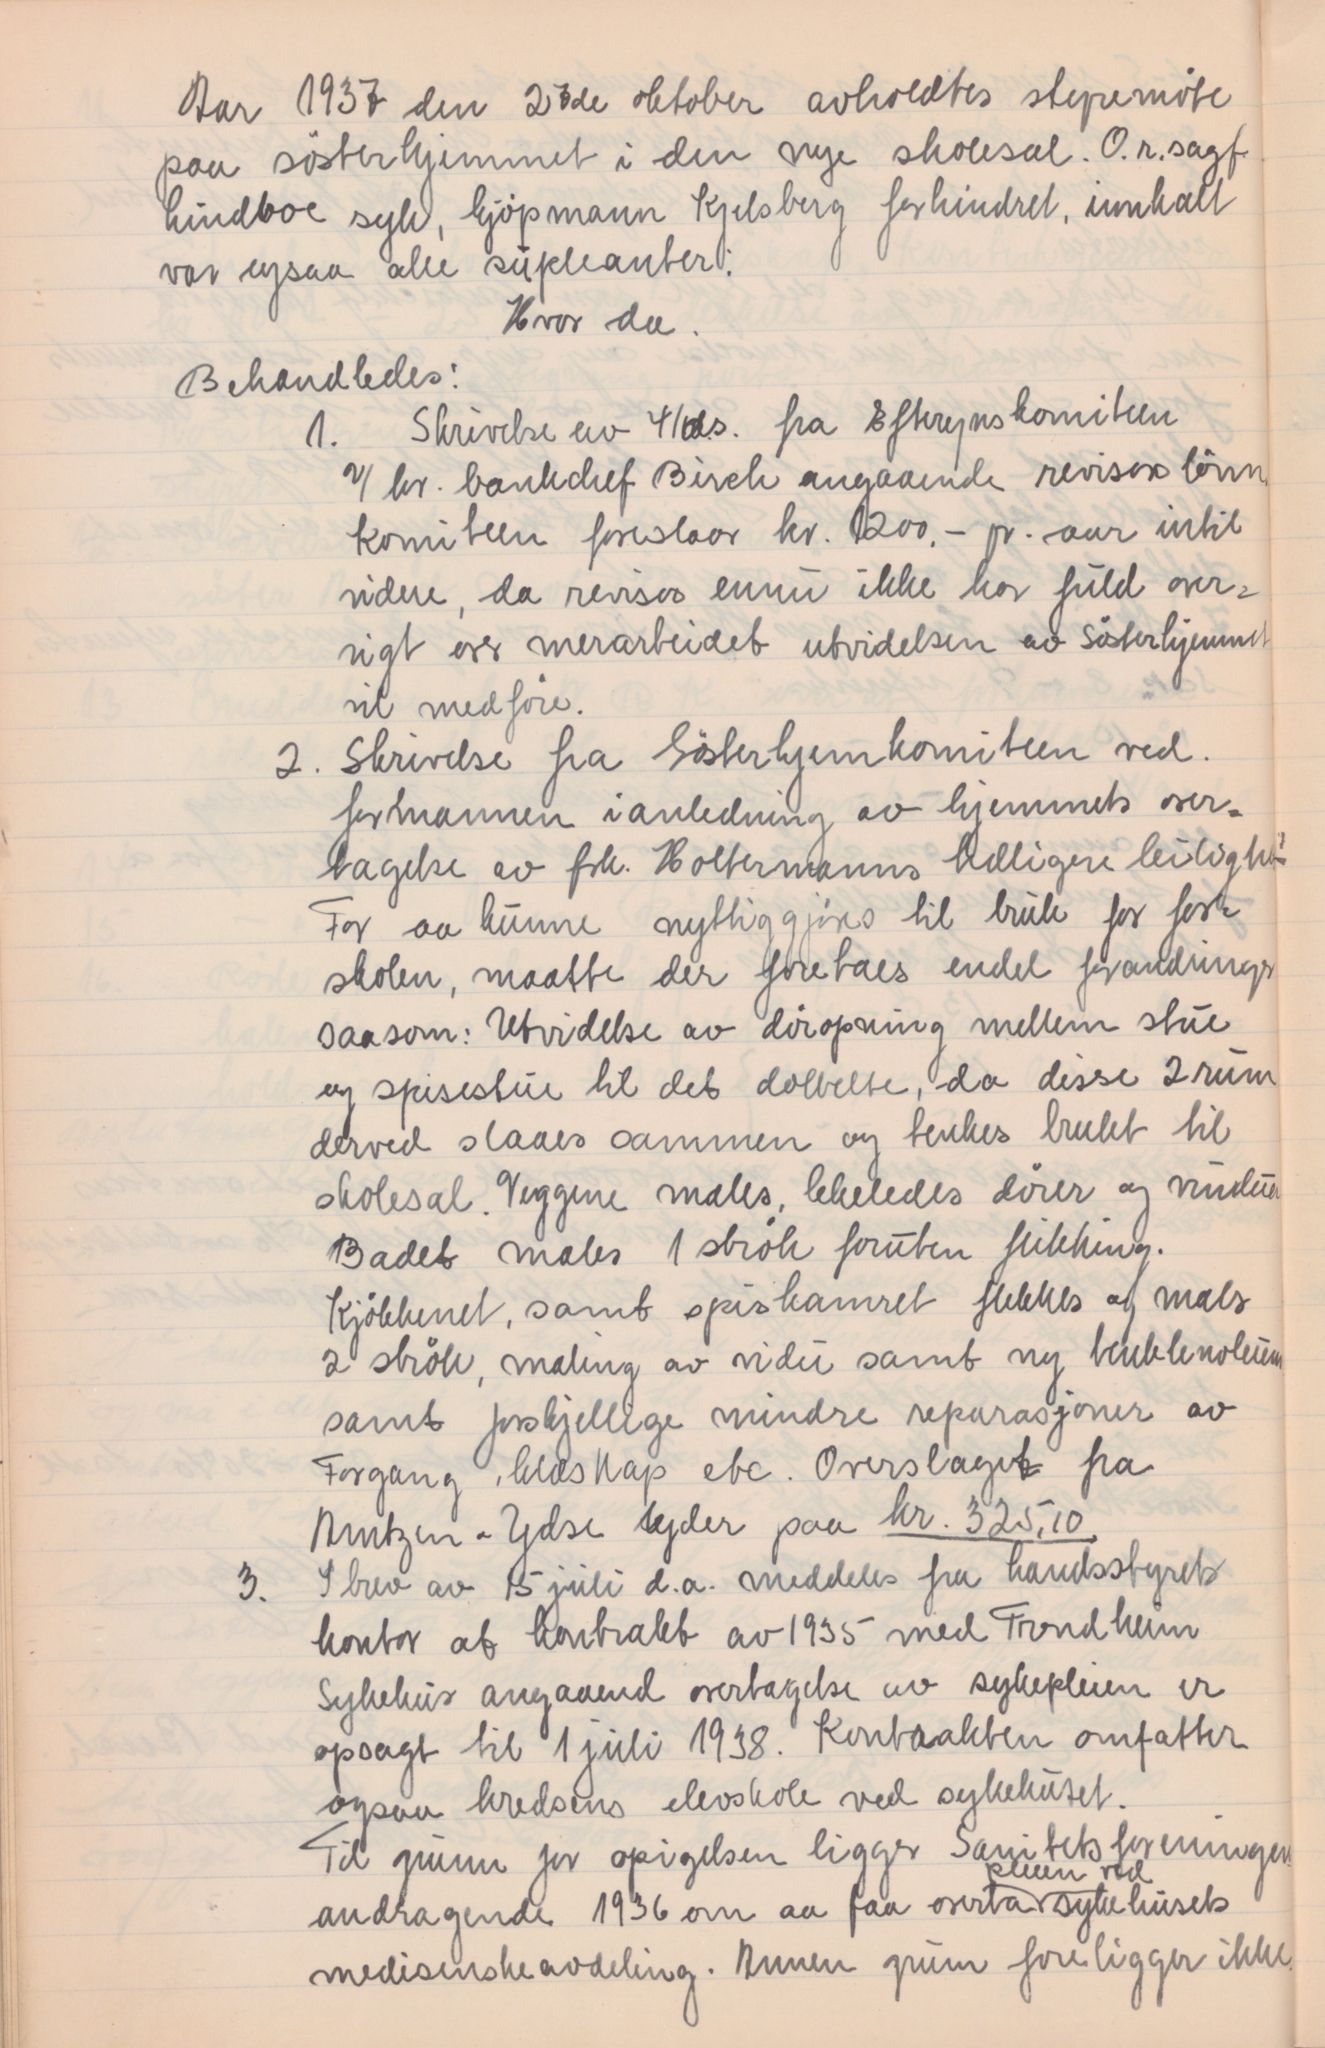 Aar 1937 den 27de oktober avholdtes styremöte
paa sösterhjemmet i den nye skolesal. O.r.sagf
Lindboe syk, kjöpmann Kjelsberg forhindret, innkalt
var ogsaa alle supleanter:
Hvor da.
Behandledes:
1. Skrivelse av 4/ d.s. fra Eftersynskomiteen
v/ hr. bankchef Birch angaaende revisors lönn.
Komiteen foreslaar kr. 1200,- pr. aar intil
videre, da revisor ennu ikke har fuld over-
sigt over merarbeidet utvidelsen av Sösterhjemmet
vil medföre.
2. Skrivelse fra Sösterhjemkomiteen ved.
formannen i anledning av hjemmets over-
tagelse av frk. Holtermanns tidligere leilighet
For aa kunne nyttiggjöres til bruk for for-
skolen, maatte der foretaes endel forandringer
saasom: Utvidelse av döropning mellem stue
og spisestue til det dobbelte, da disse 2 rum
derved slaaes sammen og tenkes brukt til
skolesal. Veggene males, likeledes dörer og vinduer
Badet males 1 strök foruten flikking.
Kjökkenet, samt spiskamret flikkes og males
2 strök, maling av vidu samt ny benklinoleum
samt forskjellige mindre reparasjoner av
Forgang, kleskap etc. Overslaget fra
Arntzen - Ydse lyder paa kr. 325,10
3. I brev av 15 juli d.a. meddeles fra Landsstyrets
kontor at kontrakt av 1935 med Trondheim
Sykehus angaaend overtagelse av sykepleien er
opsagt til 1 juli 1938. Kontrakten omfatter
ogsaa kredsens elevskole ved sykehuset.
Til grunn for opsigelsen ligger Sanitetsforeningens
andragende 1936 om aa faa overta pleien ved sykehusets
medisenske avdeling. Annen grunn foreligger ikke.